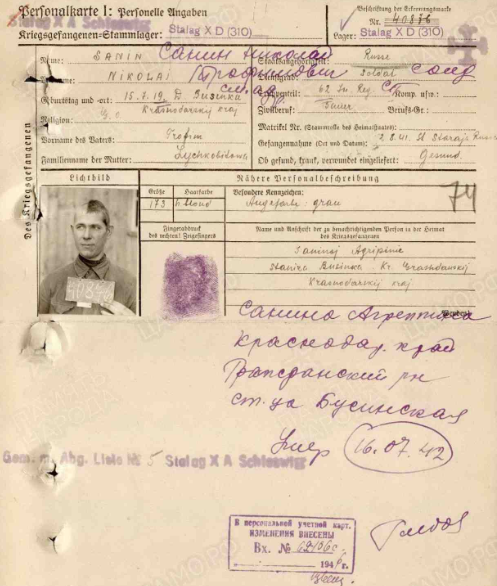 Personalkarte I: Personelle Angaben
Kriegsgefangenen-Stammlager: Stalag X D (310)
Beschriftung der Erkennungsmarke
Nr. 40876
Lager: Stalag X D (310)
Des Kriegsgefangenen
Name: SANIN Санин Николай
Vorname: NIKOLAI Трофимович
Geburtstag und -ort: 15.7.19, D. Businka
Krasnodarskij kraj
Religion:
Vorname des Vaters: Trofim
Familienname der Mutter:
Staatsangehörigkeit: Russe
Dienstgrad: Soldat солд
Truppenteil: 62 In. Reg. Komp. usw.:
Zivilberuf: Bauer Berufs-Gr.:
Matrikel Nr. (Stammrolle des Heimatstaates):
Gefangennahme (Ort und Datum): 2.8.41. St Staraja Russa
Ob gesund, krank, verwundet eingeliefert: Gesund
Lichtbild
Nähere Personalbeschreibung
Größe
Haarfarbe
Besondere Kennzeichen:
173
blond
Augefarbe grau
74
Fingerabdruck
des rechten! Zeigefingers
Name und Anschrift der zu benachrichtigenden Person in der Heimat
des Kriegsgefangenen
Saninoj Agripine
Staniza Businka
Krasnodarskij kraj
Санина Агреппина
Краснодар. край
Гражданский рн
ст-ца Бусинская
Умер 16.07.42
Gem. m. Abg. Liste № 5 Stalag X A Schleswig
В персональной учетной карт.
ИЗМЕНЕНИЯ ВНЕСЕНЫ
Вх. №
194 6 г.
ЦАМО.РФ